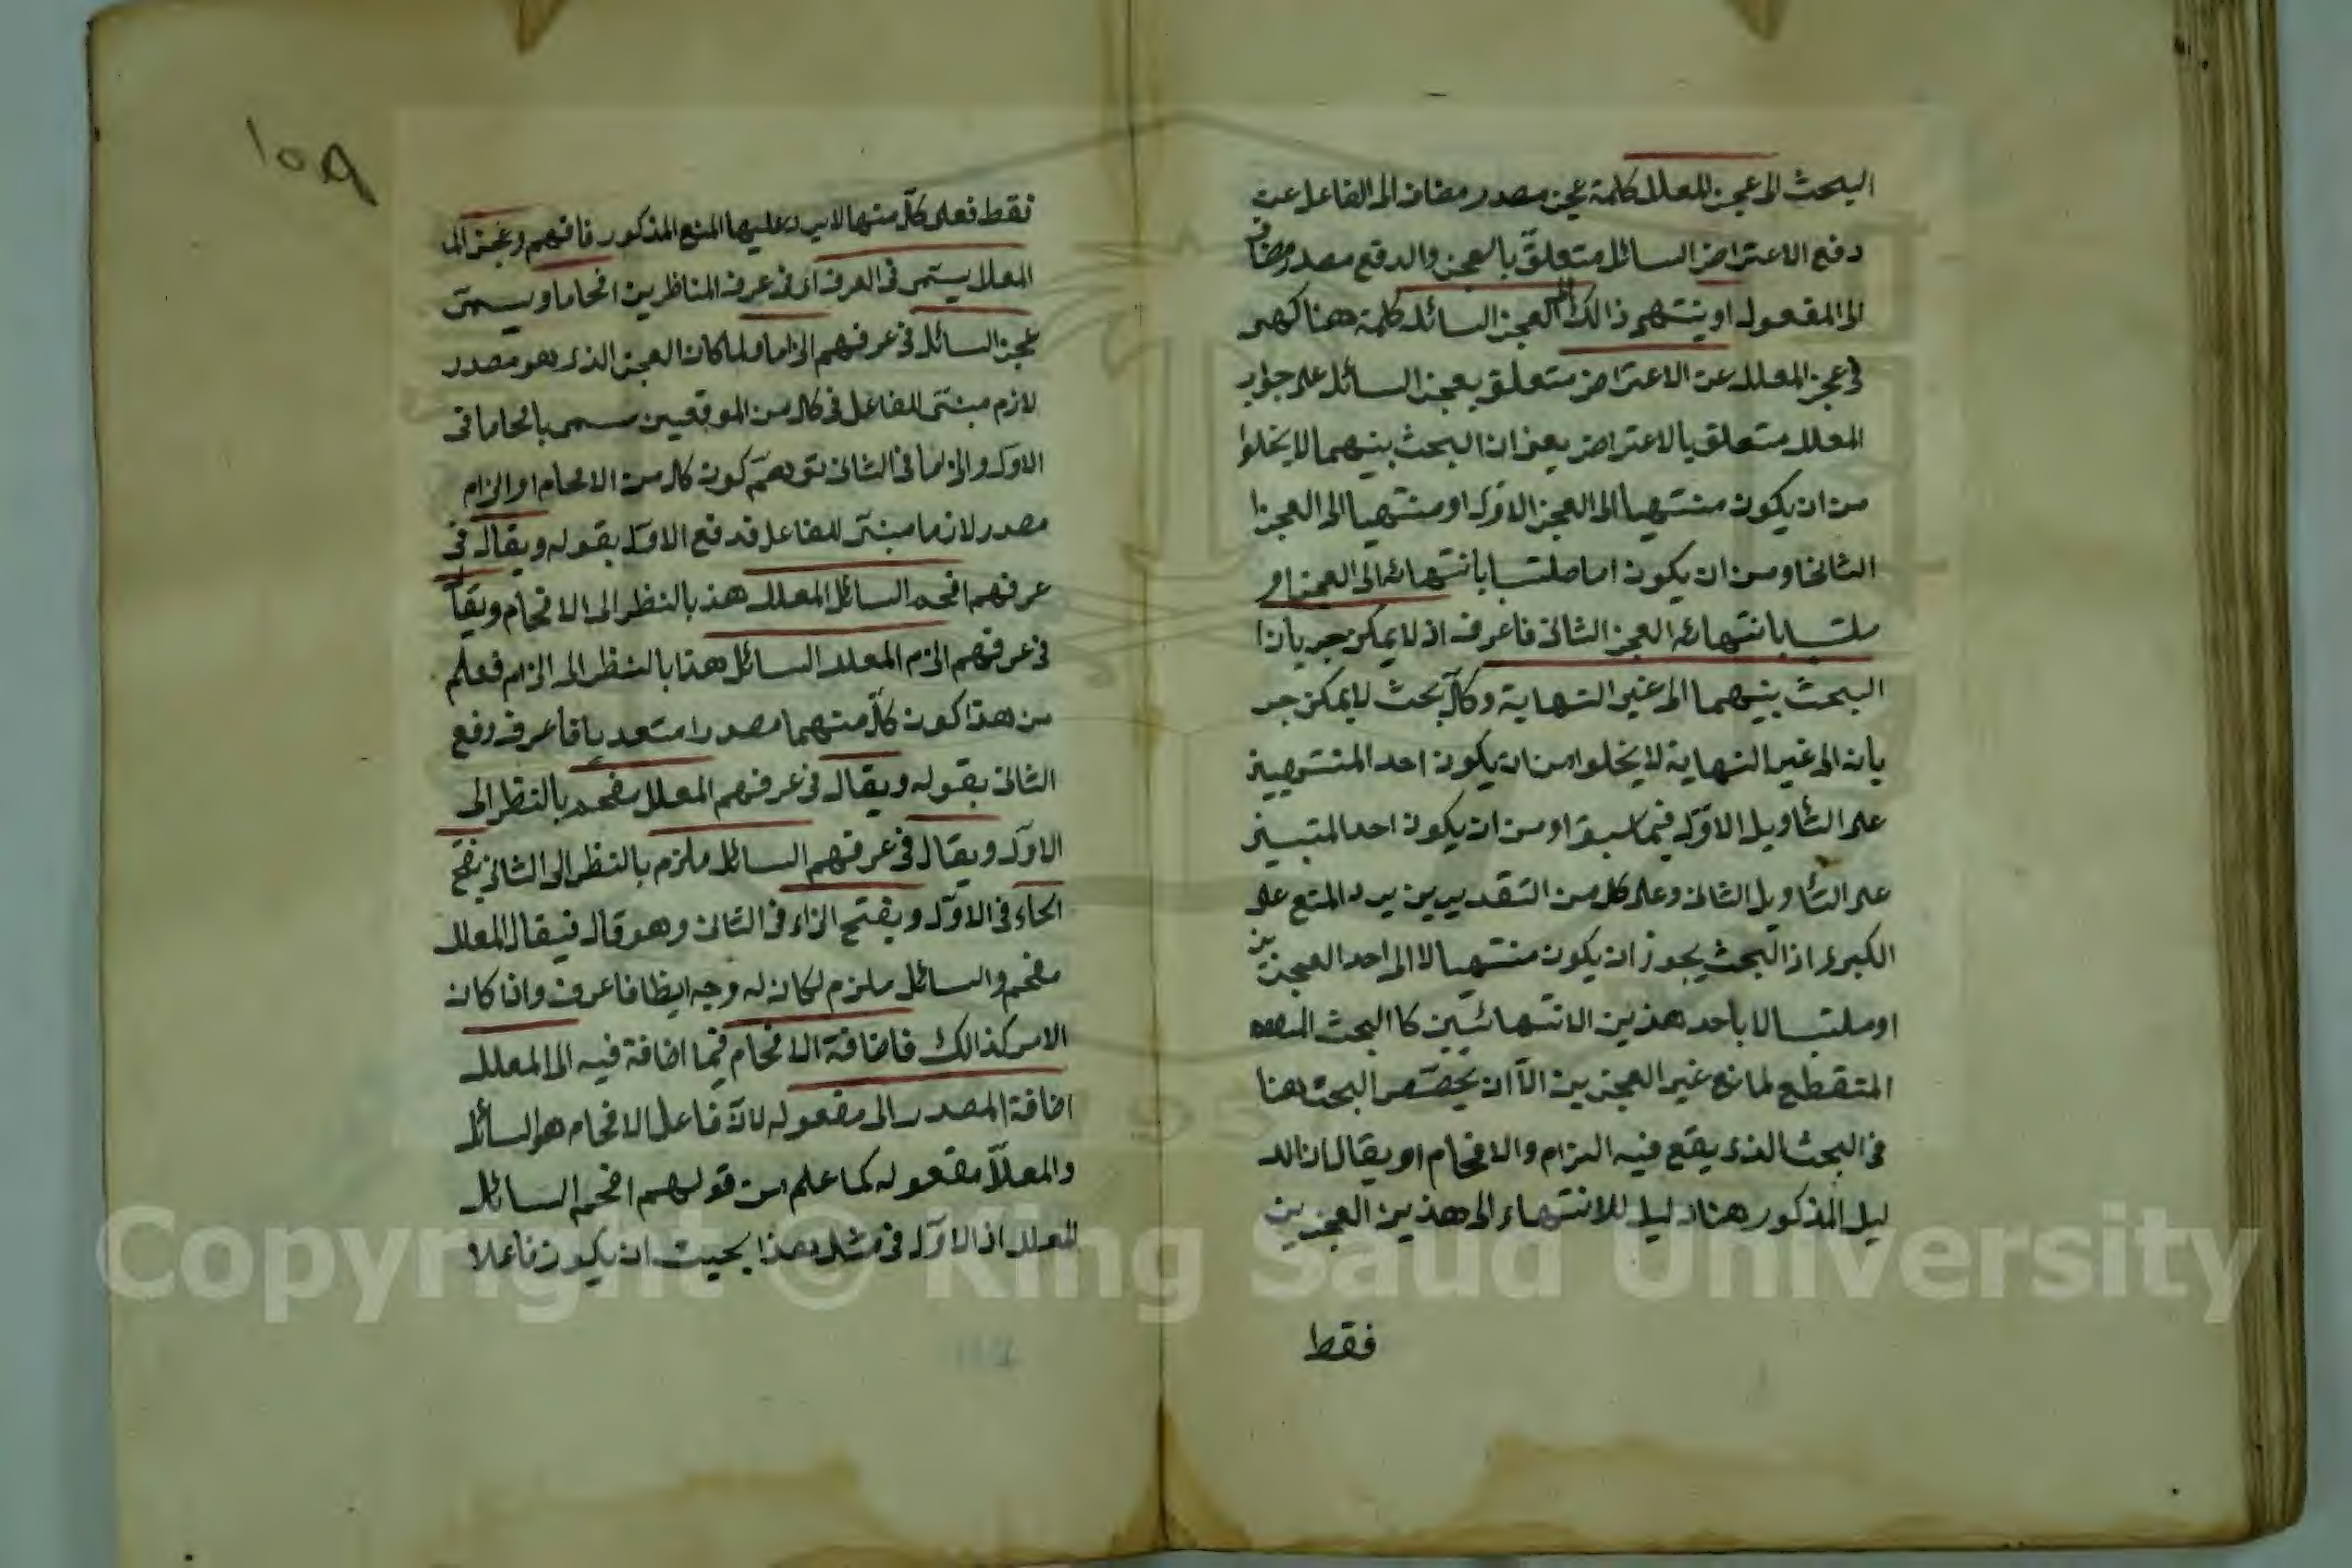 البحث الى عجز المعلل كلمة عجز مصدر مضاف الى الفاعل عن
دفع الاعتراض السائل متعلق بالعجز والدفع مصدر مضاف
الى المفعول او ينتهى ذالك الى العجز السائل كلمة هنا كهى
فى عجز المعلل عن الاعتراض متعلق بعجز السائل على جواب
المعلل متعلق بالاعتراض يعنى ان البحث بينهما لا يخلوا
من ان يكون منتهيا الى العجز الاول او منتهيا الى العجز ا
الثانى او من ان يكون اما ملتبسا بانتهائه الى العجز او
ملتبسا بانتهائه العجز الثانى فاعرف اذ لا يمكن جريان ا
البحث بينهما الى غير النهاية وكل بحث لا يمكن جر
يانه الى غير النهاية لا يخلوا من ان يكون احد المنتهيين
على التأويل الاول فيما سبق او من ان يكون احد المتبسين
على التأويل الثانى وعلى كل من التقديرين يرد المنع على
الكبرى اذ البحث يجوز ان يكون منتهيا لا الى احد العجزين
او ملتبسا لا بأحد هذين الانتهائيين كا البحث
المنقطع لمانع غير العجزين الا ان يخصص البحث هنا
فى البحث الذى يقع فيه الزام والافحام او يقال ان الد
ليل المذكور هنا دليل للانتهاء الى هذين العجزين
فقط
١٥٩
فقط فعلى كل منها لا يرد عليها المنع المذكور فافهم وعجز الم
المعلل يسمى فى العرف اى فى عرف المناظرين افحاما ويسمى
عجز السائل فى عرفهم الزاما ولما كان العجز الذى هو مصدر
لازم مبنى للفاعل فى كل من الموقعين سمى بافحاما فى
الاول والزاما فى الثانى توهم كون كل من الافحام او الزام
مصدر لازما مبنى للفاعل قد فع الاول بقوله ويقال فى
عرفهم افحم السائل المعلل هذ بالنظر الى الافحام ويقا
فى عرفهم الزم المعلل السائل هذا بالنظر الى الزام فعلم
من هذا كون كل منهما مصدرا متعديا فاعرف دفع
الثانى بقوله ويقال فى عرفهم المعلل مفحم بالنظر الى
الاول ويقال فى عرفهم السائل ملزم بالنظر الى الثانى بفتح
الحاء فى الاول وبفتح الزاء فى الثانى وهو قال فيقال المعلل
مفحم والسائل ملزم لكان له وجه ايظا فاعرف واذا كان
الامر كذالك فاضافة الافحام فيما اضافة فيه الى المعلل
اضافة المصدر الى مفعوله لان فاعل الافحام هو السائل
والمعلل مفعوله كما علم من قولهم افحم السائل
المعلل اذ الاول فى مثل هذا بحيث ان يكون فاعلا